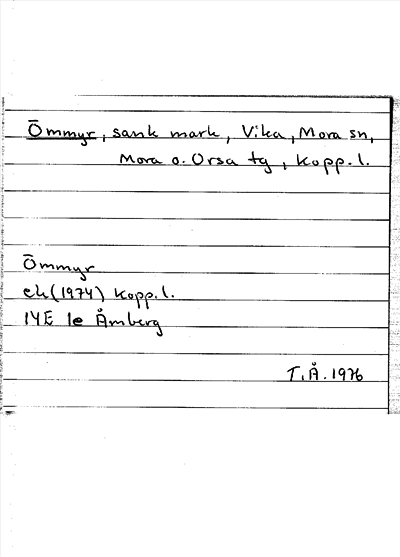 Ömmyr, sank mark, Vika, Mora sn,
Mora o. Orsa tg, Kopp. l.
Ömmyr
ek (1974) Kopp. l.
14E 1e Åmberg
T. Å. 1976